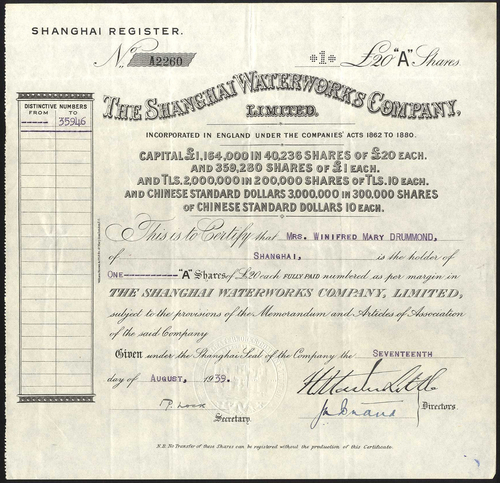 SHANGHAI REGISTER.
No. A2260
1
£20 "A" Shares
THE SHANGHAI WATERWORKS COMPANY,
LIMITED.
DISTINCTIVE NUMBERS
FROM TO
----- 35946
INCORPORATED IN ENGLAND UNDER THE COMPANIES' ACTS 1862 TO 1880.
CAPITAL £1,164,000 IN 40,236 SHARES OF £20 EACH.
AND 359,280 SHARES OF £1 EACH.
AND TLS. 2,000,000 IN 200,000 SHARES OF TLS. 10 EACH.
AND CHINESE STANDARD DOLLARS 3,000,000 IN 300,000 SHARES
OF CHINESE STANDARD DOLLARS 10 EACH.
This is to Certify that MRS. WINIFRED MARY DRUMMOND,
of SHANGHAI, is the holder of
ONE---------- "A" Shares of £20 each FULLY PAID numbered as per margin in
THE SHANGHAI WATERWORKS COMPANY, LIMITED,
subject to the provisions of the Memorandum and Articles of Association
of the said Company
Given under the Shanghai Seal of the Company the SEVENTEENTH
day of AUGUST, 1939.
Secretary.
Directors.
N.B. No Transfer of these Shares can be registered without the production of this Certificate.